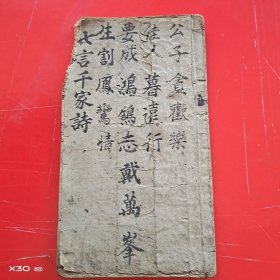 公子貪歡樂
佳人暮遠行
要成鴻鵠志 戴萬峯
生割鳳鸞情
七言千家詩
X30